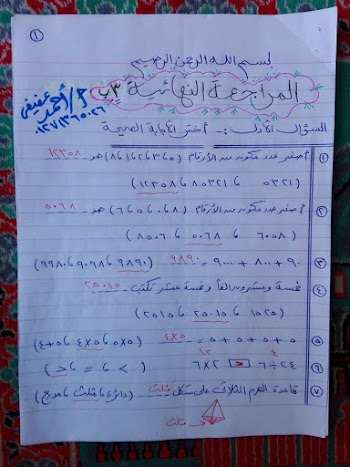 ١
بسم الله الرحمن الرحيم
المراجعة النهائية ٣ب
أ/أحمد عفيفي
السؤال الأول :- أختر الإجابة الصحيحة
١ أصغر عدد مكون من الأرقام (٥،٣،٢،١،٨) هو ١٢٣٥٨
(١٢٣٥٨ ، ٨٥٣٢١ ، ٥٣٢١)
٢ أصغر عدد مكون من الأرقام (٨،٠،٥،٦) هو ٥٠٦٨
(٨٥٠٦ ، ٥٠٦٨ ، ٦٠٥٨)
٣ ٩٠ + ٨٠٠ + ٩٠٠٠ = ٩٨٩٠ (٩٨٩٠ ، ٩٠٩٨ ، ٩٩٨٠)
٤ خمسة وعشرون ألفاً وخمسة عشر تكتب ٢٥٠١٥
(٢٥١٥ ، ٢٥٠١٥ ، ١٥٢٥)
٥ ٥ + ٥ + ٥ + ٥ = ٤×٥ (٥×٥ ، ٤×٥ ، ٤+٥)
٦ ٢٤ ÷ ٦ < ٢×٦ (< ، = ، >)
٤ ١٢
٧ قاعدة الهرم الثلاثى على شكل مثلث (دائرة ، مثلث ، مربع)
مثلث